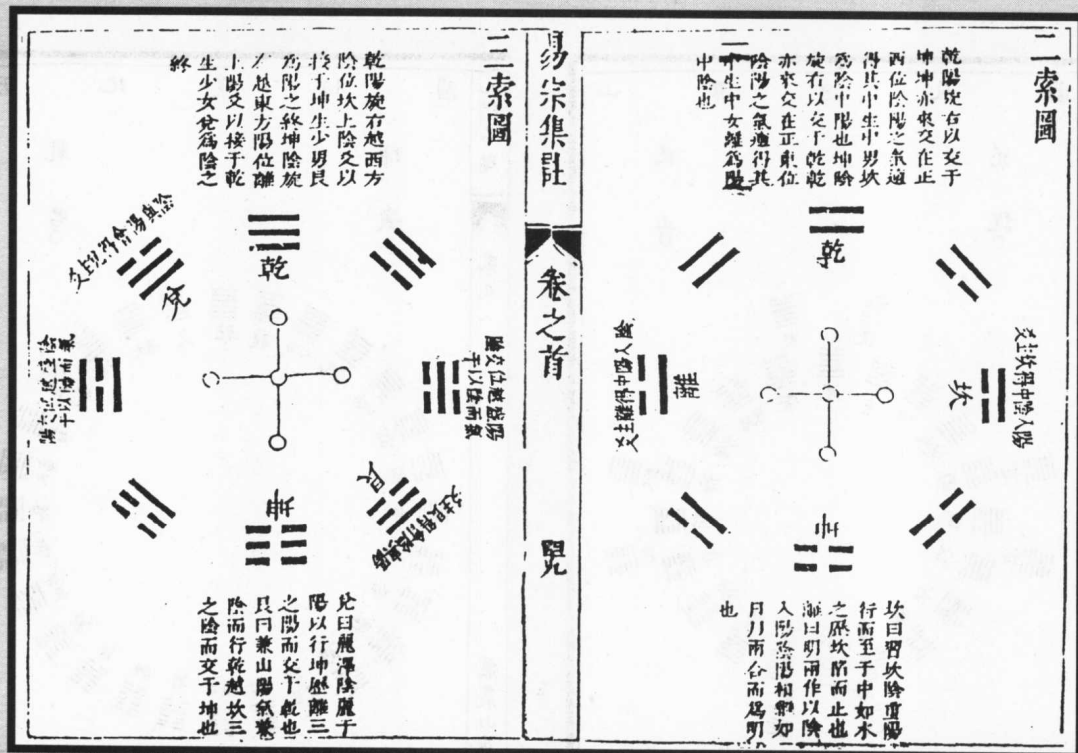 二索圖
乾陽旋右以交于
坤坤亦來交在正
西位陰陽之氣適
得其中生中男坎
為陰中陽也坤陰
旋右以交于乾乾
亦來交在正東位
陰陽之氣適得其
中生中女離為陽
中陰也
乾
坎
陽入陰中得坎主爻
離
陰入陽中得離主爻
坎曰習坎陰重陽
行而至于中如水
之歷坎陷而止也
離曰明兩作以陰
入陽陰陽相繼如
日月兩合而為明
也
易宗集註
卷之首
三索圖
乾陽旋右越西方
陰位坎上陰爻以
接于坤生少男艮
為陽之終坤陰旋
越東方陽位離
上陽爻以接于乾
生少女兌為陰之
終
乾
兌
陰與陽會得兌上爻
艮
陽與陰會得艮主爻
兌曰麗澤陰麗于
陽以行坤歷離三
之陽而交于乾也
艮曰兼山陽氣兼
陰而行乾越坎三
之陰而交于坤也